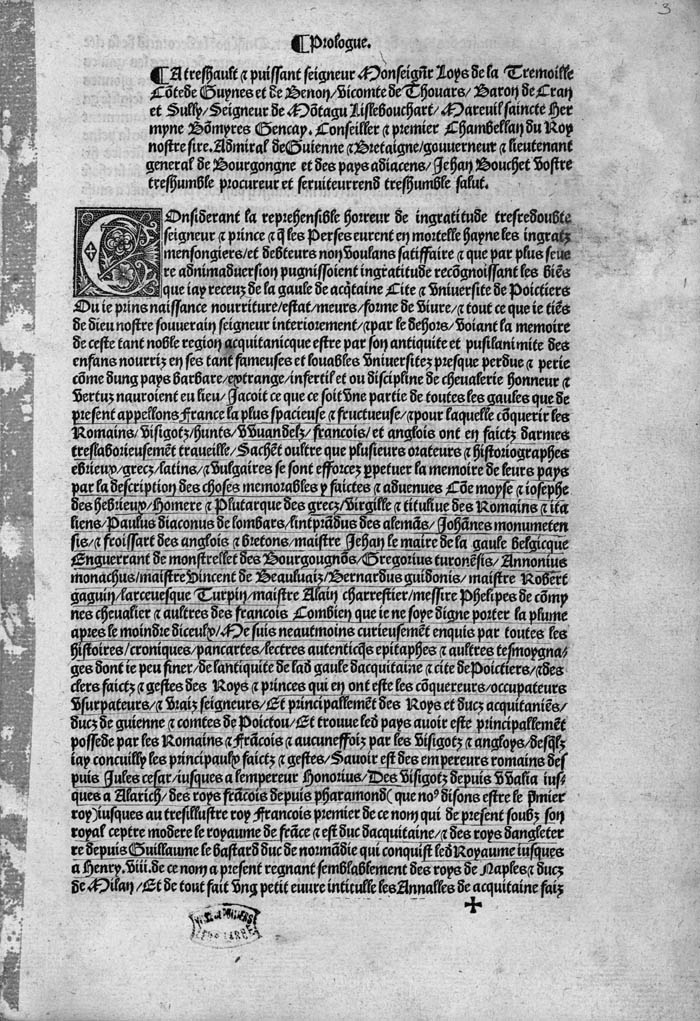 3
¶Prologue.
¶A treshault ⁊ puissant seigneur Monseignr̃ Loys de la Tremoille
Cõte de Guynes et de Benon/vicomte de Thouars/ Baron de Cran
et Sully/Seigneur de Mõtagu Lislebouchart/ Mareuil saincte Her
myne Bõmyres Gencay. Conseiller ⁊ premier Chambellan du Roy
nostre sire. Admiral de Guienne ⁊ Bretaigne/gouuerneur ⁊ lieutenant
general de Bourgongne et des pays adiacens/ Jehan Bouchet vostre
treshumble procureur et seruiteurrend treshumble salut.
COnsiderant la reprehensible horreur de ingratitude tresredoubte
seigneur ⁊ prince ⁊ q̃ les Perses eurent en mortelle hayne les ingratz
mensongiers/et debteurs non voulans satiffaire ⁊ que par plus seue
re adnimaduersion pugnissoient ingratitude recõgnoissant les biẽs
que iay receuz de la gaule de acq̃taine Cite ⁊ vniuersite de Poictiers
Ou ie prins naissance nourriture/estat/meurs/forme de viure/ ⁊ tout ce que ie tiẽs
de dieu nostre souuerain seigneur interiorement/ ⁊par le dehors/ voiant la memoire
de ceste tant noble region acquitanicque estre par son antiquite et pusilanimite des
enfans nourriz en ses tant fameuses et louables vniuersitez presque perdue ⁊ perie
cõme dung pays barbare/extrange/infertil et ou discipline de cheualerie honneur ⁊
vertuz nauroient eu lieu/ Jacoit ce que ce soit vne partie de toutes les gaules que de
present appellons France la plus spacieuse ⁊ fructueuse/ ⁊pour laquelle cõquerir les
Romains/ visigotz/hunts/ vvuandelz/ francois/ et anglois ont en faictz darmes
treslaborieusemẽt traueille/ Sachẽt oultre que plusieurs orateurs ⁊ historiographes
ebrieux/grecz/latins/ ⁊vulgaires se sont efforcez ꝑpetuer la memoire de leurs pays
par la description des choses memorables y faictes ⁊ aduenues Cõe moyse ⁊ iosephe
des hebrieux/ Homere ⁊ Plutarque des grecz/virgille ⁊ titulius des Romains ⁊ ita
liens/Paulus diaconus de lombars/lintprãdus des alemãs/ Johãnes monumeten
sis/ ⁊ froissart des anglois ⁊ bretons/maistre Jehan le maire de la gaule belgicque
Enguerrant de monstrellet des Bourgougnõs/Gregorius turonẽsis/ Annonius
monachus/maistre vincent de Beauluaiz/Bernardus guidonis/ maistre Robert
gaguin/larceuesque Turpin/maistre Alain charrestier/messire Phelipes de cõmy
nes cheualier ⁊ aultres des francois Combien que ie ne soye digne porter la plume
apres le moindre diceulx/Me suis neautmoins curieusemẽt enquis par toutes les
histoires/croniques/pancartes/lectres autenticq̃s epitaphes ⁊ aultres tesmoygna
ges dont ie peu finer/de lantiquite de lad gaule dacquitaine ⁊ cite de Poictiers/⁊des
clers faictz ⁊ gestes des Roys ⁊ princes qui en ont este les cõquereurs/occupateurs
vsurpateurs/ ⁊ vraiz seigneurs/ Et principallemẽt des Roys et ducz acquitaniẽs/
ducz de guienne ⁊ comtes de Poictou/ Et trouue led pays auoir este principallemẽt
possede par les Romains ⁊ frãcois ⁊ aucuneffoiz par les visigotz ⁊ angloys/desq̃lz
iay concuilly les principaulx faictz ⁊ gestes/Sauoir est des empereurs romains des
puis Jules cesar/iusques a lempereur Honorius/ Des visigotz depuis vvalia ius⸗
ques a Alarich/ des roys frãcois depuis pharamond( que noꝰ disons estre le p̃mier
roy)iusques au tresillustre roy Francois premier de ce nom qui de present soubz son
royal ceptre modere le royaume de frãce ⁊ est duc dacquitaine/ ⁊ des roys dangleter
re depuis Guillaume le bastard duc de normãdie qui conquist led Royaume iusques
a Henry. viii. de ce nom a present regnant semblablement des roys de Naples ⁊ ducz
de Milan/ Et de tout fait vng petit euure intitulle les Annalles de acquitaine faiz